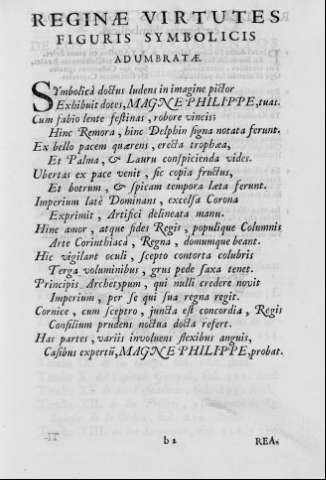 REGINÆ VIRTUTES
FIGURIS SYMBOLICIS
ADUMBRATÆ.
SYmbolicà doctus ludens in imagine pictor
Exhibuit dotes, MAGNE PHILIPPE, tuas.
Cum fabio lente festinas, robore vincis:
Hinc Remora, hinc Delphin signa notata ferunt.
Ex bello pacem quærens, erecta trophæa,
Et Palma, & Lauru conspicienda vides.
Ubertas ex pace venit, sic copia fructus,
Et botrum, & spicam tempora læta ferunt.
Imperium latè Dominans, excelsa Corona
Exprimit, Artifici delineata manu.
Hinc amor, atque fides Regis, populique Columnis
Arte Corinthiacâ, Regna, domumque beant.
Hic vigilant oculi, scepto contorta colubris
Terga voluminibus, grus pede saxa tenet.
Principis Archetypum, qui nulli credere novit
Imperium, per se qui sua regna regit.
Cornice, cum sceptro, juncta est concordia, Regis
Consilium prudens noctua docta refert.
Has partes, variis involvens flexibus anguis,
Casibus expertū, MAGNE PHILIPPE, probat.
b 2
REA-